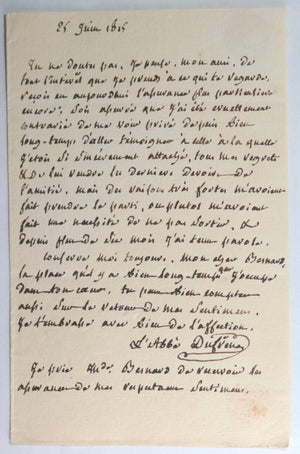 25 Juin 1815
Tu ne doutes pas, je pense, mon ami, de
tout l'intérêt que je prends à ce qui te regarde.
reçois en aujourdhui l'assurance plus particulière
encore. Sois assuré que j'ai été cruellement
contrarié de me voir privé depuis bien
long-temps d'aller témoigner à celle à la quelle
j'étois si sincèrement attaché, tous mes regrets
& de lui rendre les derniers devoirs de
l'amitié. mais des raisons très fortes m'avoient
fait prendre le parti, ou plutot m'avoient
fait une nécessité de ne pas sortir, &
depuis plus de six mois j'ai tenu parole.
Conserve moi toujours, mon cher Bernard,
la place qu'il y a bien long-temps que j'occupe
dans ton cœur. tu peux bien compter
aussi sur le retour de mes sentimens.
Je t'embrasse avec bien de l'affection.
L'Abbé
Je prie Mde. Bernard de recevoir les
assurances de mes respectueux sentimens.